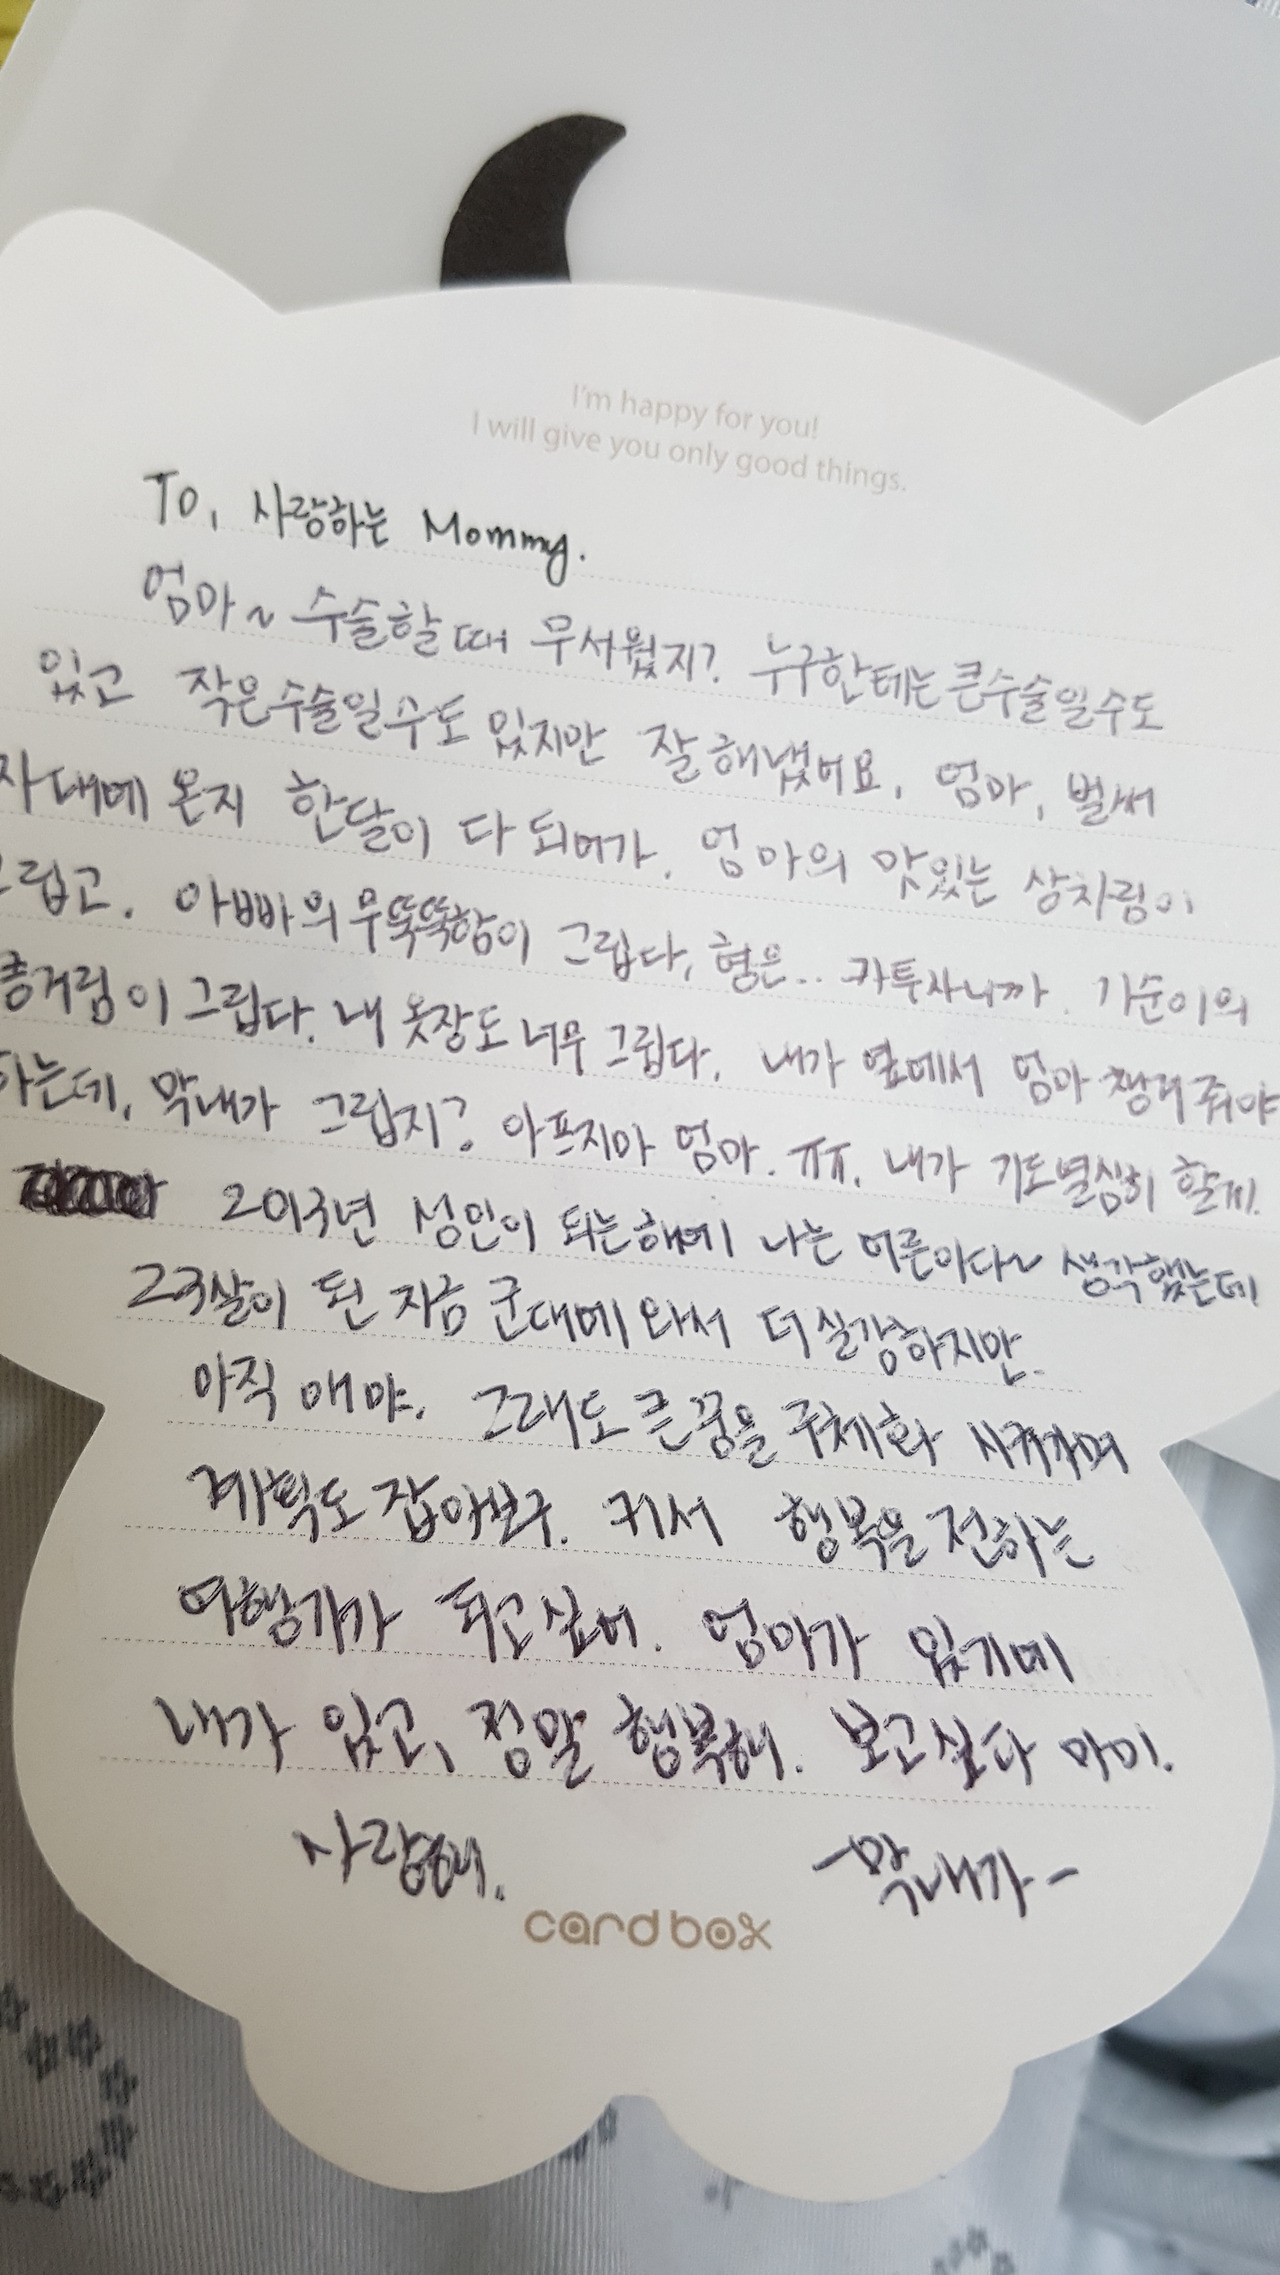 I'm happy for you!
I will give you only good things.
To, 사랑하는 Mommy.
엄마~ 수술할때 무서웠지? 누구한테는 큰수술일수도
있고 작은수술일수도 있지만 잘해냈어요. 엄마, 벌써
자대에 온지 한달이 다 되어가. 엄마의 맛있는 상차림이
그립고. 아빠의 무뚝뚝함이 그립다, 형은.. 카투사니까. 가순이의
그립다. 내 옷장도 너무 그립다. 내가 옆에서 엄마 챙겨줘야
하는데, 막내가 그립지? 아프지마 엄마. ㅠㅠ. 내가 기도열심히 할게.
2013년 성인이 되는해에 나는 어른이다~ 생각했는데
23살이 된 지금 군대에 와서 더 실감하지만.
아직 애야. 그래도 큰꿈을 구체화 시키며
계획도 잡아보구. 커서 행복을 전하는
여행가가 되고싶어. 엄마가 있기에
내가 있고, 정말 행복해. 보고싶다 마미.
사랑해. -막내가-
cardbox